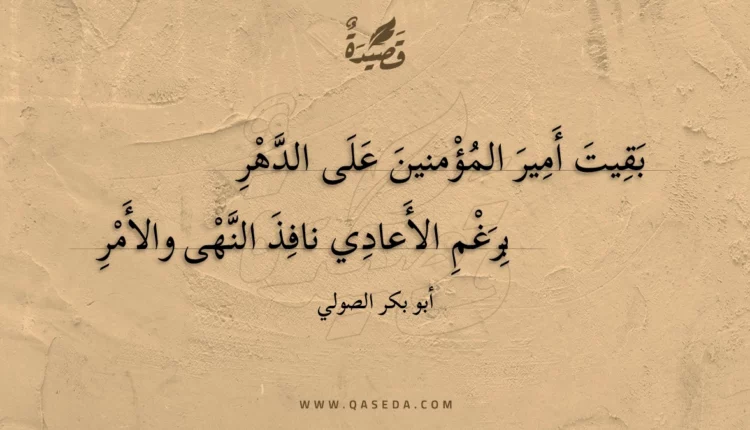 قَصِيْدَةٌ
بَقِيتَ أَمِيرَ المُؤْمنينَ عَلَى الدَّهْرِ
بِرَغْمِ الأَعادِي نافِذَ النَّهْى والأَمْرِ
أبو بكر الصولي
WWW.QASEDA.COM